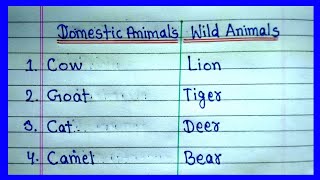 Domestic Animals Wild Animals
1. Cow Lion
2. Goat Tiger
3. Cat Deer
4. Camel Bear